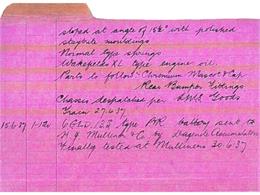 sloped at angle of 58° with polished
staybrite mouldings
Normal type springs
Wakefields XL type engine oil.
Parts to follow:- Chromium Mascot & Cap
Rear Bumper Fittings
Chassis despatched per Goods
Train 27.6.37
15.6.37 type battery sent to
H. J. Mulliner & Co by Dagenite Accumulators
& finally tested at Mulliners 20.6.37